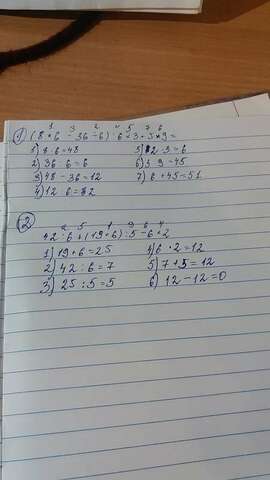 1 3 2 4 5 7 6
1) (8 * 6 - 36 - 6) : 6 * 3 + 5 * 9 =
1) 8·6=48 5) 2·3=6
2) 36:6=6 6) 5·9=45
3) 48-36=12 7) 6+45=51
4) 12:6=2
2 5 1 3 6 4
2 42:6+(19+6):5-6·2
1) 19+6=25 4) 6·2=12
2) 42:6=7 5) 7+5=12
3) 25:5=5 6) 12-12=0